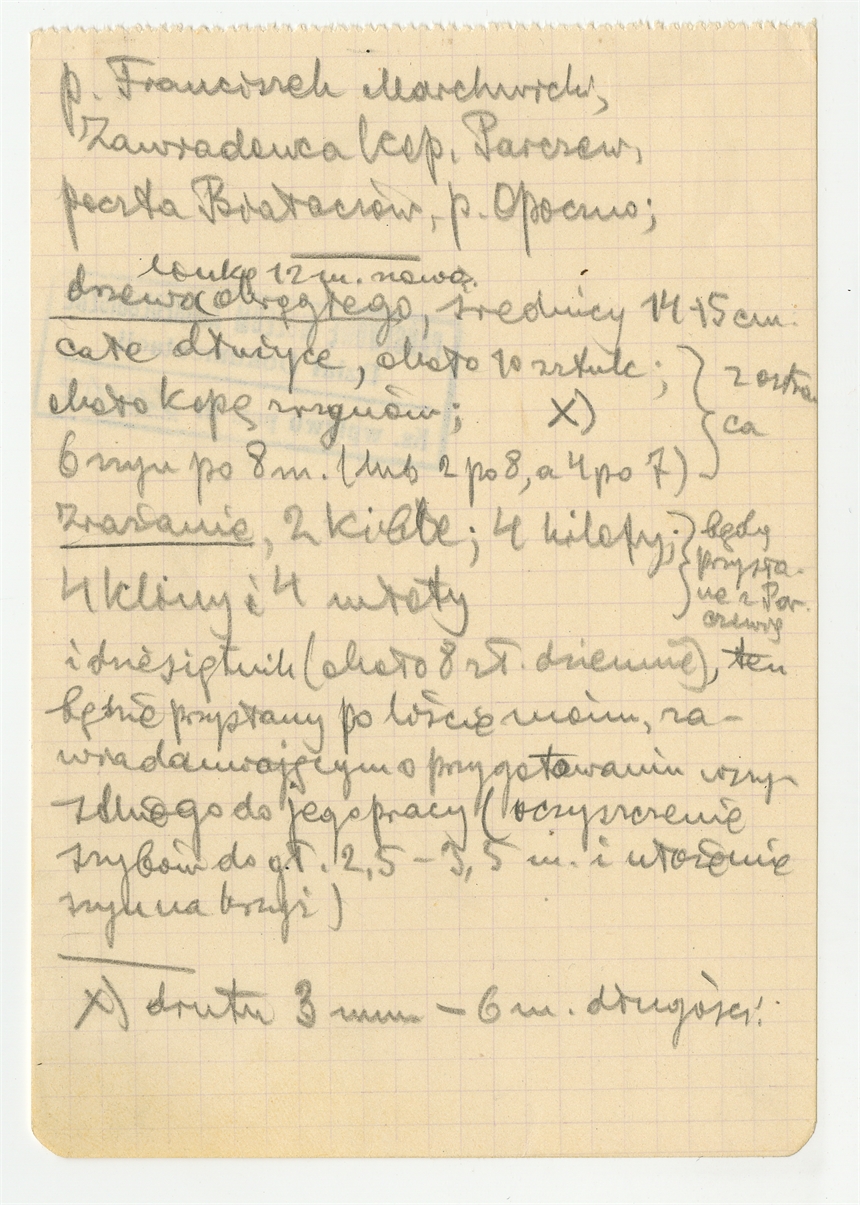 p. Franciszek Marchwicki,
Zawiadowca kop. Parczew,
poczta Białaczów, p. Opoczno;
12 m. nowa.
drzewa okrągłego, średnicy 14-15 cm.
całe dłużyce, około 10 sztuk;
około kopę ; X)
6 szyn po 8 m. (lub 2 po 8, a 4 po 7)
z Ostro
ca
Zraszanie, 2 ; 4 kilofy;
4 kliny i 4 młoty
będą
przysła-
ne z Par-
czewa
i dziesiętnik (około 8 zł. dziennie), ten
będzie przysłany po liście moim, za-
wiadamiającym o przygotowaniu wszy-
stkiego do jego pracy (oczyszczenie
szybów do gł. 2,5 – 3,5 m. i ułożenie
szyn na krzyż)
X) drutu 3 mm – 6 m. długości.